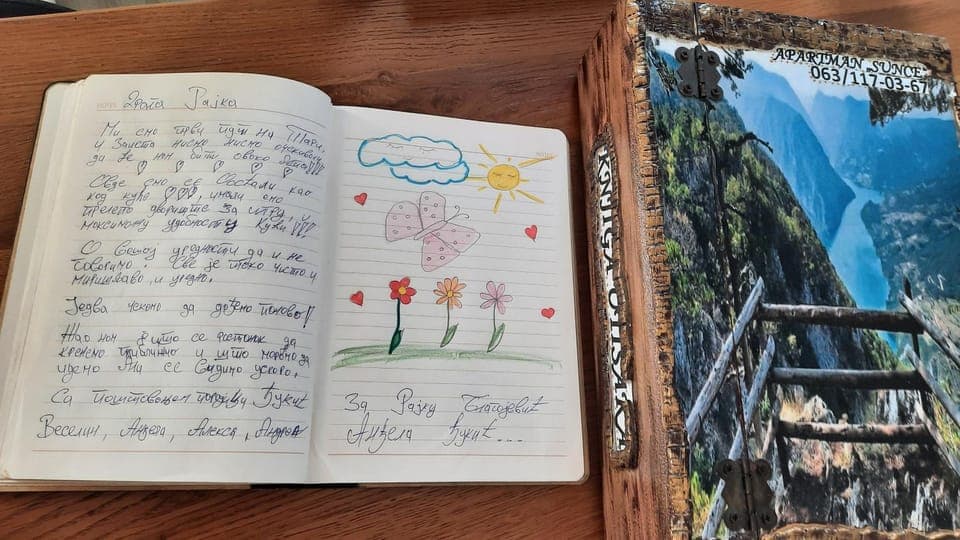 Драга Рајка
Ми смо први пут на Тари,
и заиста нисмо очекивали
да ће нам бити овако
Овде смо се осећали као
код куће, имали смо
прелепо двориште за игру, и
максималну удобност у кући!!!
О вашој уредности да и не
говоримо. Све је тако чисто и
миришљаво и уредно.
Једва чекамо да дођемо поново!!
Жао нам је што се растанак да
кренемо и што морамо да
идемо Али се видимо ускоро.
Са поштовањем породица Ђукић
Веселин, Анђела, Алекса, Андреа
За Рајку Благојевић
Анђела Ђукић...
KNJIGA UTISAKA
APARTMAN „SUNCE"
063/117-03-67